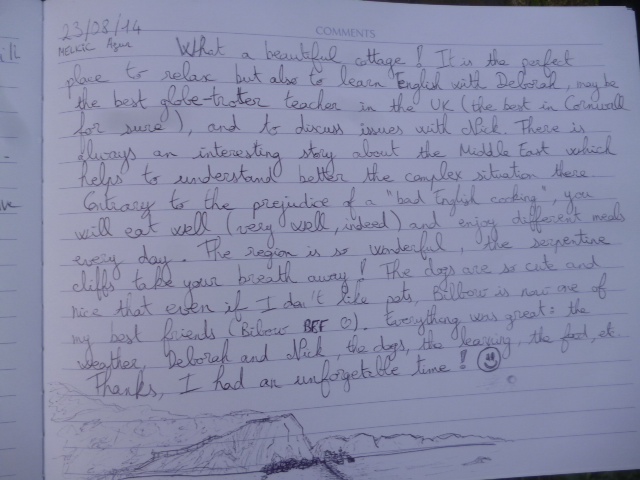 COMMENTS
23/08/14
MELKIC
What a beautiful cottage! It is the perfect
place to relax but also to learn English with Deborah, maybe
the best globe-troter teacher in the UK (the best in Cornwall
for sure), and to discuss issues with Nick. There is
always an interesting story about the Middle East which
helps to understand better the complex situation there.
Contrary to the prejudice of a "bad English cooking", you
will eat well (very well, indeed) and enjoy different meals
every day. The region is so wonderful, the serpentine
cliffs take your breath away! The dogs are so cute and
nice that even if I don't like pets, Bilbow is now one of
my best friends (Bilow BFF ☺). Everything was great: the
weather, Deborah and Nick, the dogs, the learning, the food, etc.
Thanks, I had an unforgetable time! ☺